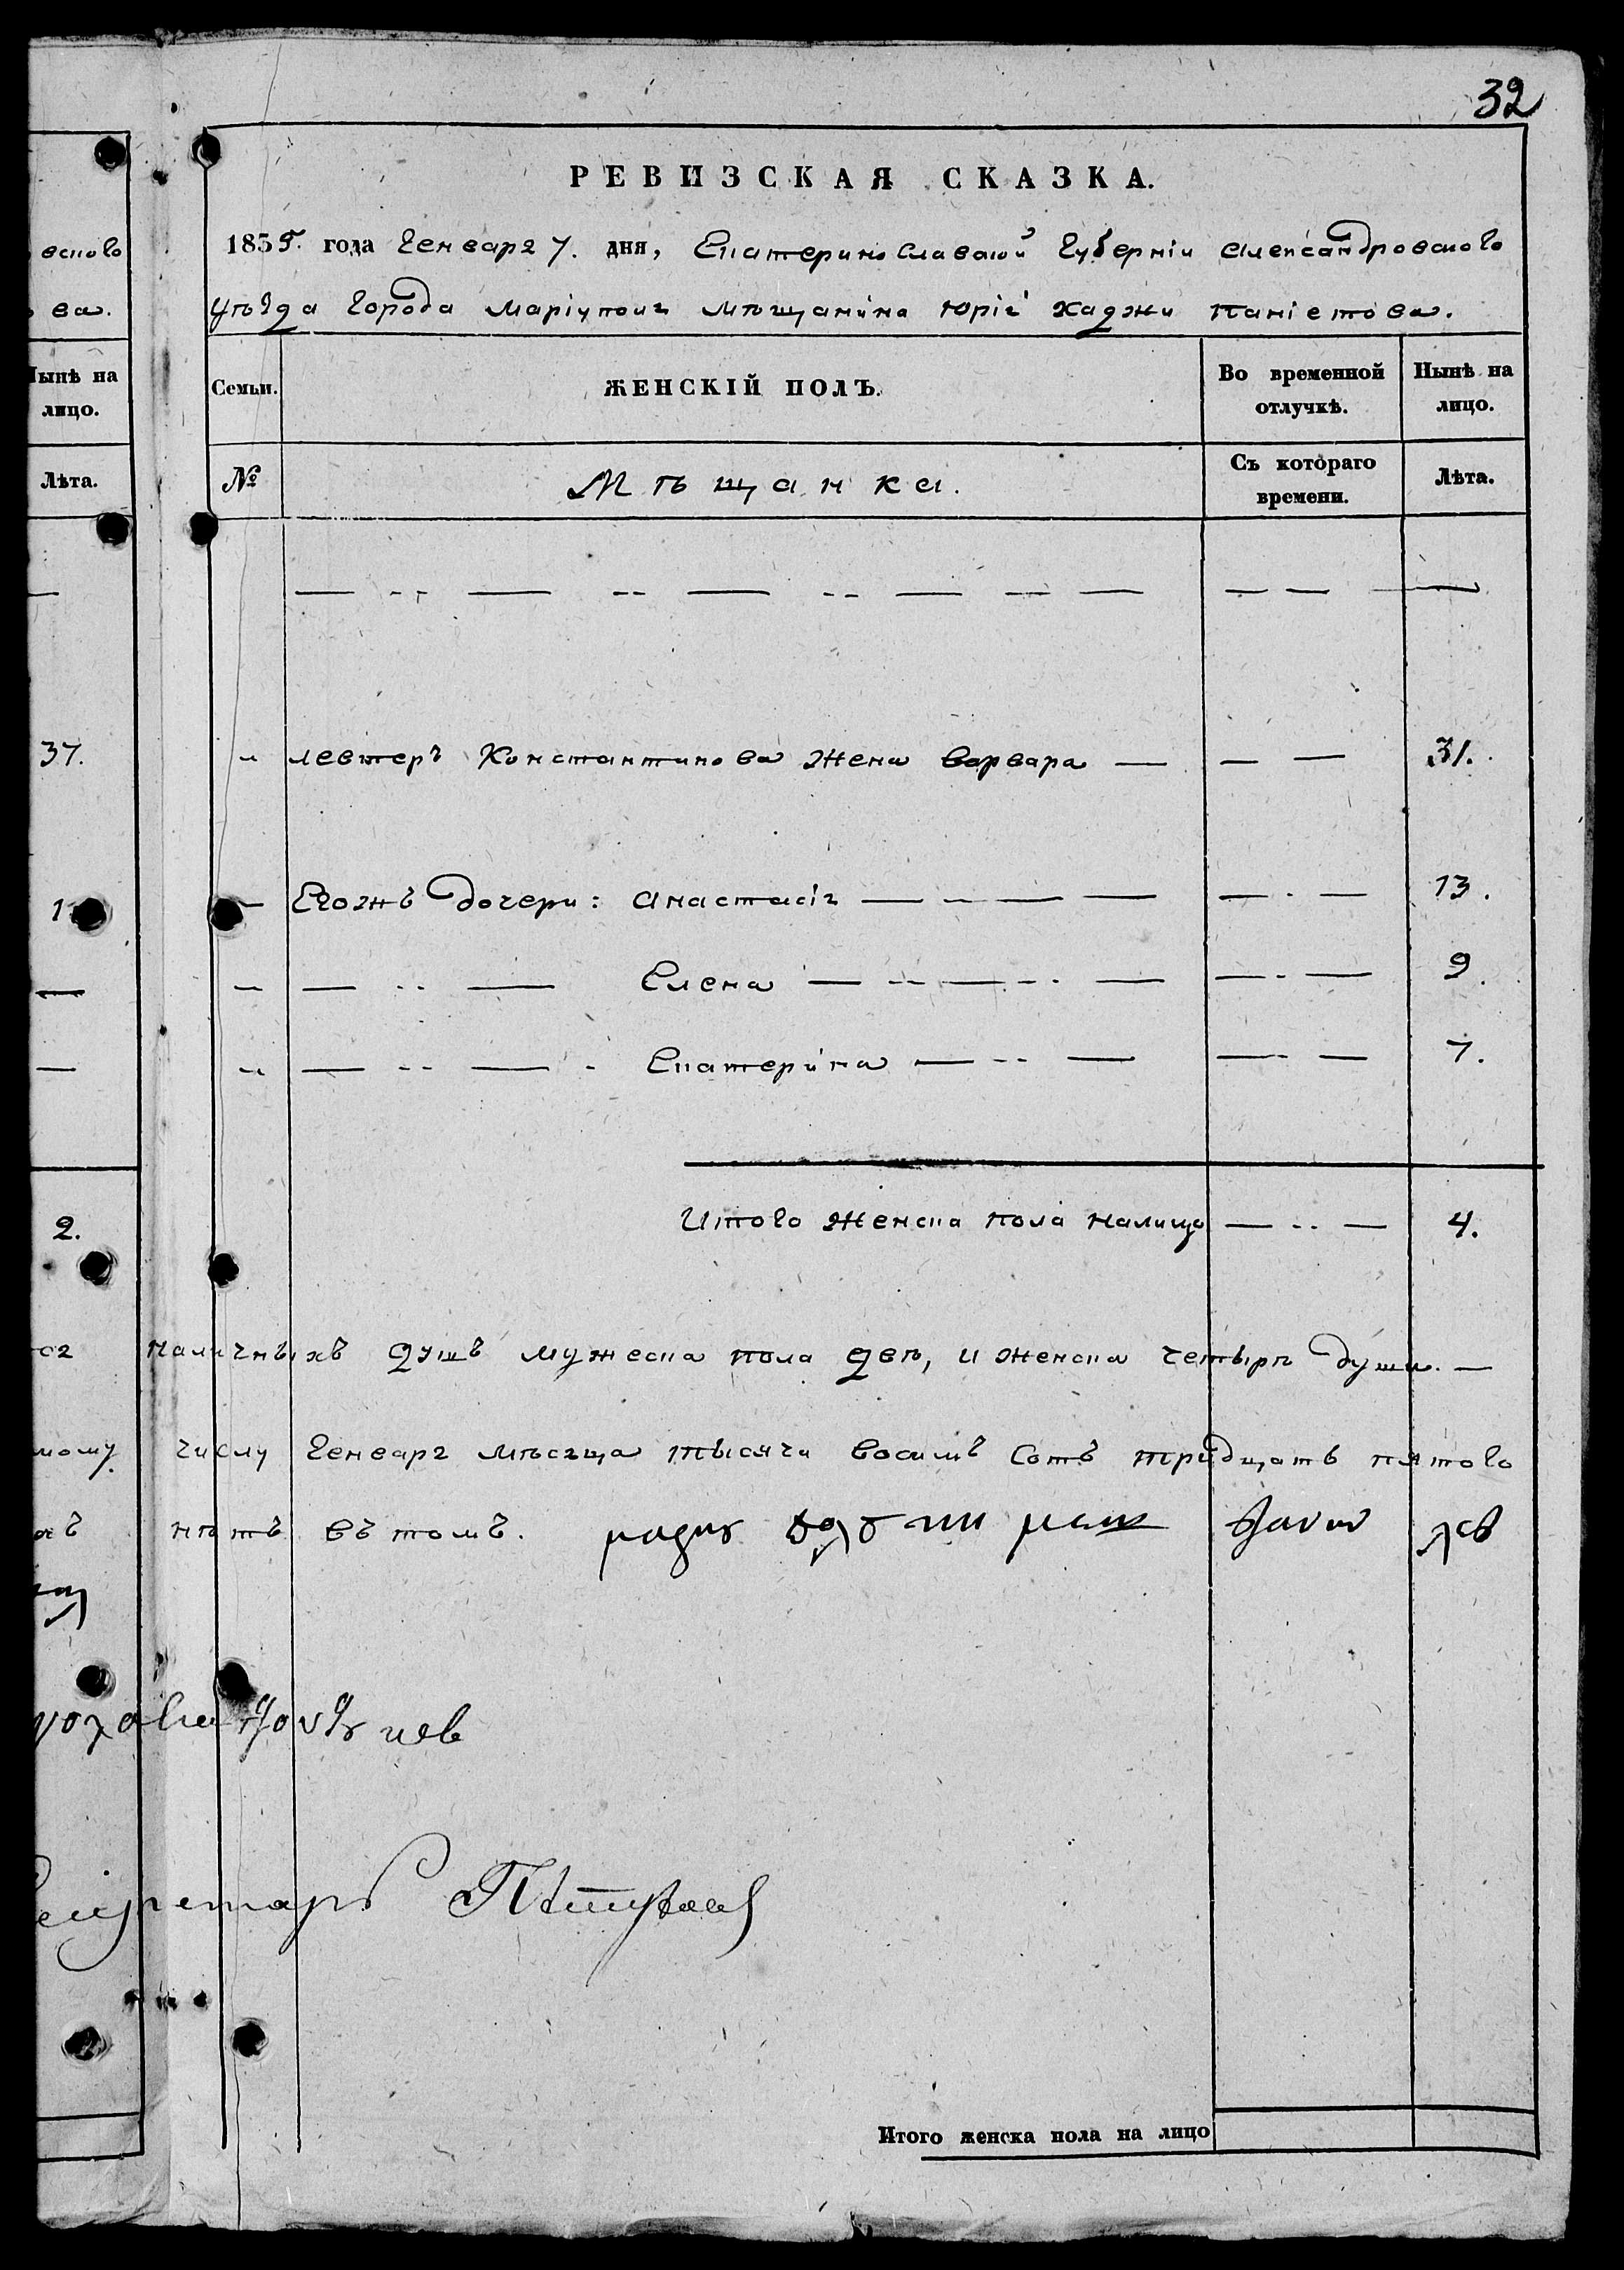 32
РЕВИЗСКАЯ СКАЗКА.
1835. года Генваря 7. дня, Екатеринославской Губерніи Александровского
уѣзда города Маріуполя мѣщанина Юрія Хаджи Паніетова.
еского
ва.
Нынѣ на
лицо.
Лѣта.
Семьи.
ЖЕНСКІЙ ПОЛЪ.
Во временной
отлучкѣ.
Нынѣ на
лицо.
№
Мѣщанка.
Съ котораго
времени.
Лѣта.
37.
левтеръ Константинова жена варвара — — — 31.
Егожъ дочери: анастасія — — — — — 13.
Елена — — — — — 9.
Екатерина — — — — 7.
2.
Итого женска пола налицо — — 4.
наличныхъ душъ мужеска пола двѣ, и женска четырѣ души. —
числу Генваря мѣсяца тысяча восимъ сотъ тридцать пятого
нѣтъ въ томъ.
Секретарь
Итого женска пола на лицо